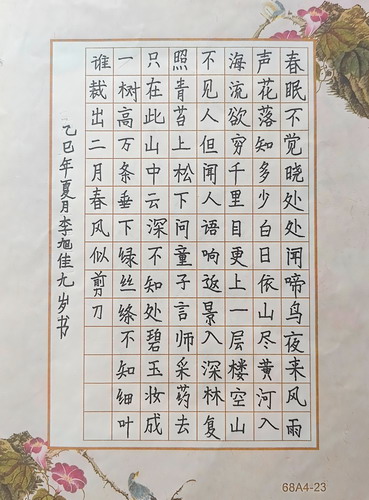 春眠不觉晓处处闻啼鸟夜来风雨
声花落知多少白日依山尽黄河入
海流欲穷千里目更上一层楼空山
不见人但闻人语响返景入深林复
照青苔上松下问童子言师采药去
只在此山中云深不知处碧玉妆成
一树高万条垂下绿丝绦不知细叶
谁裁出二月春风似剪刀
乙巳年夏月李旭佳九岁书
68A4-23